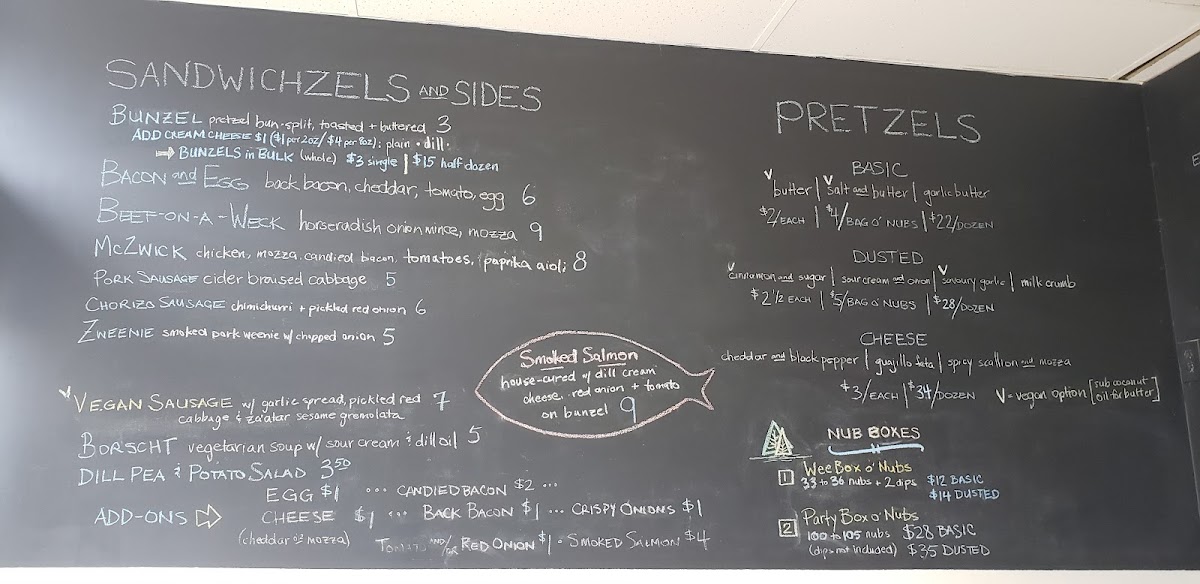 SANDWICHZELS AND SIDES
BUNZEL pretzel bun-split, toasted + buttered 3
ADD CREAM CHEESE $1 ($1 per 2oz/ $4 per 8oz): plain • dill •
⇒ BUNZELS in BULK (whole) $3 single | $15 half dozen
BACON and EGG back bacon, cheddar, tomato, egg 6
BEEF-ON-A-WECK horseradish onion mince, mozza 9
MCZWICK chicken, mozza, candied bacon, tomatoes, paprika aioli 8
PORK SAUSAGE cider braised cabbage 5
CHORIZO SAUSAGE chimichurri + pickled red onion 6
ZWEENIE smoked pork weenie w/ chopped onion 5
Smoked Salmon
house-cured w/ dill cream
cheese, red onion + tomato
on bunzel 9
V VEGAN SAUSAGE w/ garlic spread, pickled red 7
cabbage & za'atar sesame gremolata
BORSCHT vegetarian soup w/ sour cream & dill oil 5
DILL PEA & POTATO SALAD 3 50
ADD-ONS ⇨
EGG $1 ••• CANDIED BACON $2 •••
CHEESE $1 ••• BACK BACON $1 ••• CRISPY ONIONS $1
(cheddar or mozza)
TOMATO AND/OR RED ONION $1 • SMOKED SALMON $4
PRETZELS
BASIC
V butter | V salt and butter | garlic butter
$2/EACH | $4/BAG O' NUBS | $22/DOZEN
DUSTED
V cinnamon and sugar | sour cream and onion | V savoury garlic | milk crumb
$2 1/2 EACH | $5/BAG O' NUBS | $28/DOZEN
CHEESE
cheddar and black pepper | guajillo feta | spicy scallion and mozza
$3/EACH | $34/DOZEN
V = vegan option [sub coconut
oil for butter]
NUB BOXES
1 Wee Box o' Nubs
33 to 36 nubs + 2 dips $12 BASIC
$14 DUSTED
2 Party Box o' Nubs
100 to 105 nubs $28 BASIC
(dips not included) $35 DUSTED